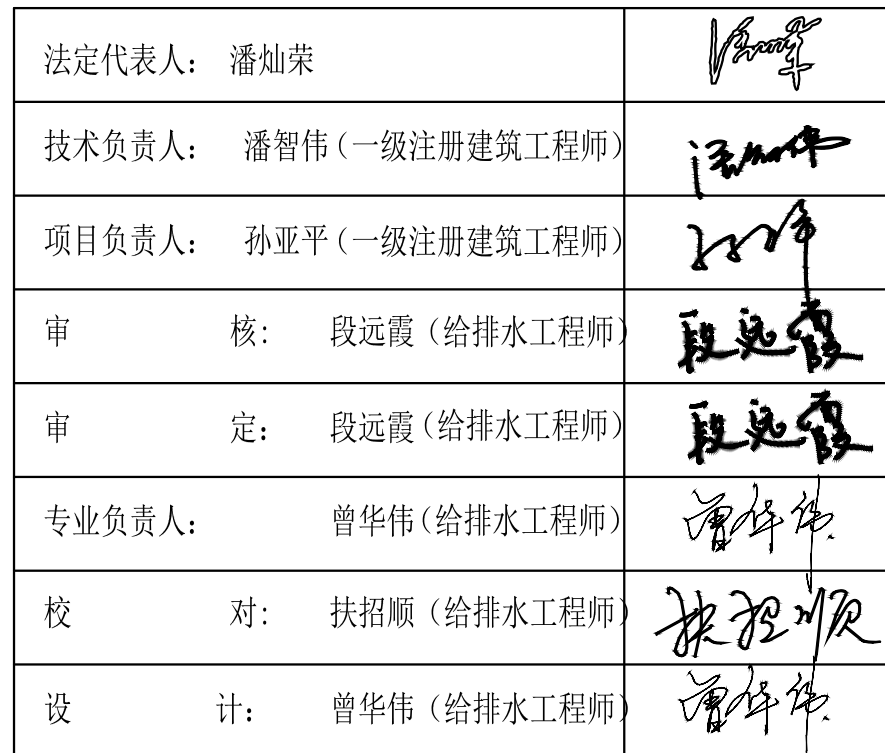 法定代表人： 潘灿荣
技术负责人： 潘智伟（一级注册建筑工程师）
潘智伟
项目负责人： 孙亚平（一级注册建筑工程师）
审 核： 段远霞（给排水工程师）
段远霞
审 定： 段远霞（给排水工程师）
段远霞
专业负责人： 曾华伟（给排水工程师）
曾华伟
校 对： 扶招顺（给排水工程师）
扶招顺
设 计： 曾华伟（给排水工程师）
曾华伟